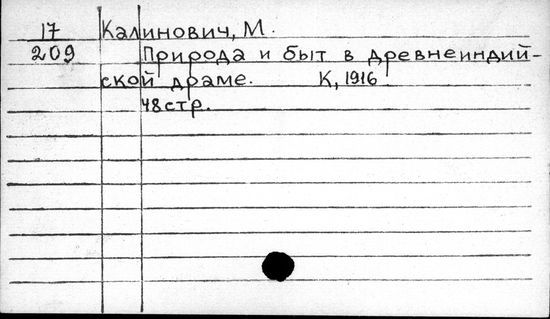 17 Калинович, М.
209 Природа и быт в древнеиндий-
ской драме. К, 1916
48 стр.